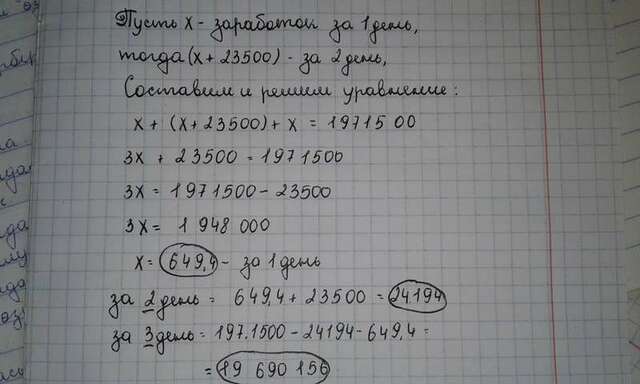 Пусть x - заработал за 1 день,
тогда (x + 23500) - за 2 день,
Составим и решим уравнение:
x + (x + 23500) + x = 1971500
3x + 23500 = 1971500
3x = 1971500 - 23500
3x = 1 948 000
x = 649,4 - за 1 день
за 2 день = 649,4 + 23500 = 24194
за 3 день = 1971500 - 24194 - 649,4 =
= 19 690 156